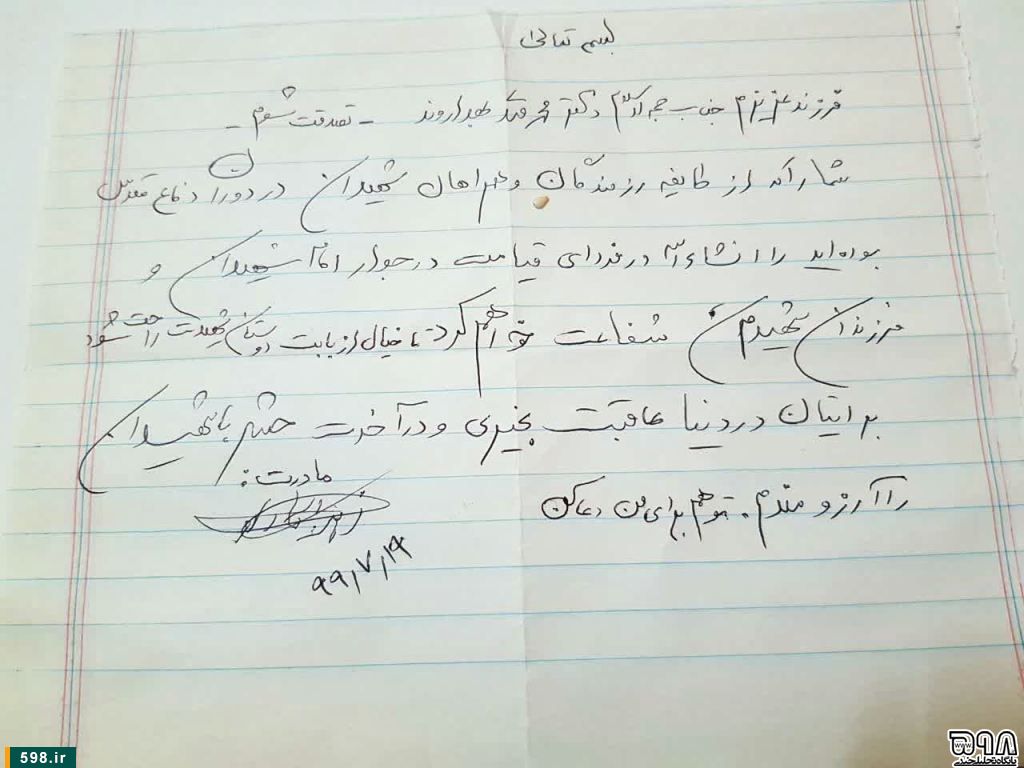 بسمه تعالی
فرزند عزیزم جناب حجه الاسلام دکتر محمدقلی بهداروند - تصدقت شوم -
شما را که از طایفه رزمندگان و همراهان شهیدان در دوران دفاع مقدس
بوده‌اید را انشاءالله در فردای قیامت در جوار امام شهیدان و
فرزندان شهیدم شفاعت خواهم کرد تا خیال از بابت دوستان شهیدت راحت شود
برایتان در دنیا عاقبت بخیری و در آخرت حشر با شهیدان
را آرزومندم. تو هم برای من دعا کن
مادرت:
۹۹،۷،۱۹
598.ir
۵۹۸